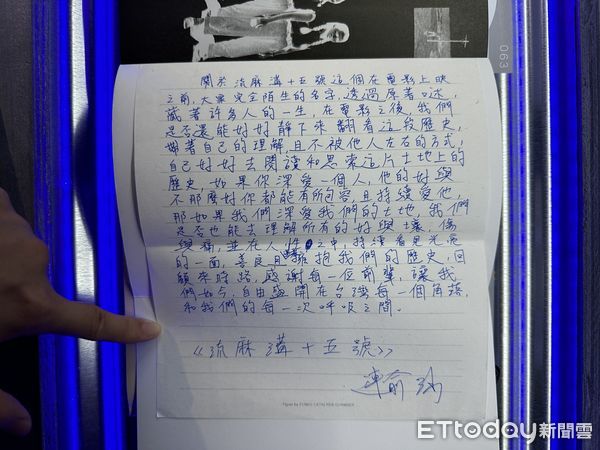 063
關於流麻溝十五號這個在電影上映
之前,大眾完全陌生的名字,透過原著口述,
藏著許多人的一生,在電影之後,我們
是否還能好好靜下來翻看這段歷史,
懷著自己的理解,且不被他人左右的方式,
自己好好去閱讀和思索這片土地上的
歷史,如果你深愛一個人,他的好與
不那麼好你都能有所包容,且持續愛他,
那如果我們深愛我們的土地,我們
是否也能去理解所有的好與壞,傷
與痛,並在人性之中,持續看見光亮
的一面,善良且擁抱我們的歷史,回
顧來時路,感謝每一位前輩,讓我
們如今,自由盛開在台灣每一個角落,
和我們的每一次呼吸之間。
《流麻溝十五號》
連俞涵
ETtoday新聞雲